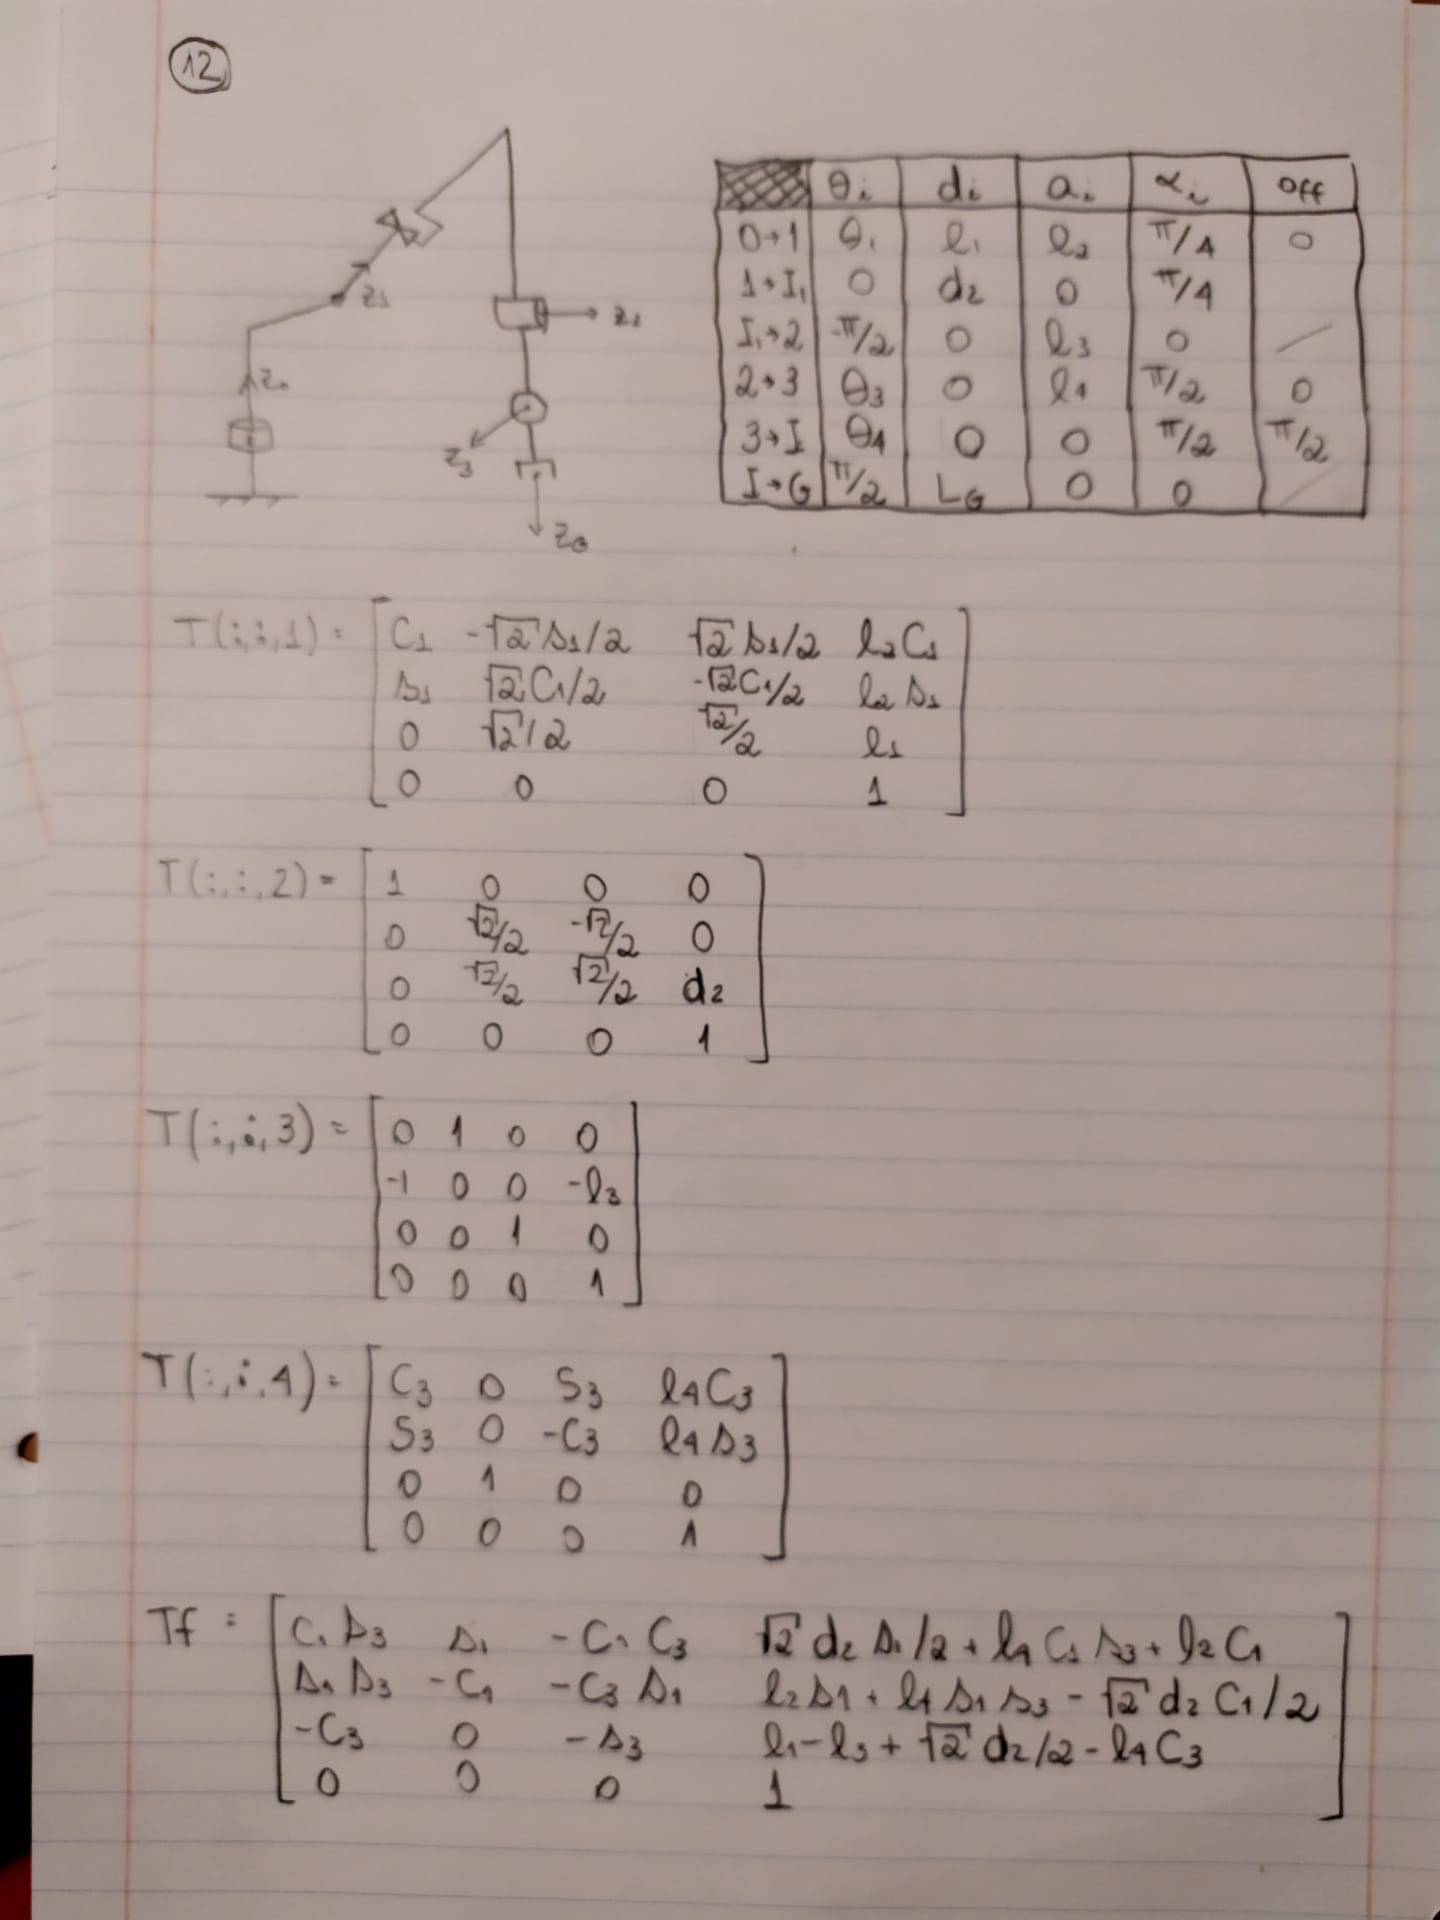 12
Z₀
Z₁
Z₂
Z₃
Z_G
θi di ai αi off
0→1 θ₁ l₁ l₂ π/4 0
1→I₁ 0 d₂ 0 π/4
I₁→2 -π/2 0 l₃ 0 /
2→3 θ₃ 0 l₄ π/2 0
3→I θ₄ 0 0 π/2 π/2
I→G π/2 L_G 0 0 /
T(:,:,1) = [C₁ -√2 s₁/2 √2 s₁/2 l₂ C₁
s₁ √2 C₁/2 -√2 C₁/2 l₂ s₁
0 √2/2 √2/2 l₁
0 0 0 1]
T(:,:,2) = [1 0 0 0
0 √2/2 -√2/2 0
0 √2/2 √2/2 d₂
0 0 0 1]
T(:,:,3) = [0 1 0 0
-1 0 0 -l₃
0 0 1 0
0 0 0 1]
T(:,:,4) = [C₃ 0 S₃ l₄ C₃
S₃ 0 -C₃ l₄ s₃
0 1 0 0
0 0 0 1]
Tf = [C₁ s₃ s₁ -C₁ C₃ √2 d₂ s₁/2 + l₄ C₁ s₃ + l₂ C₁
s₁ s₃ -C₁ -C₃ s₁ l₂ s₁ + l₄ s₁ s₃ - √2 d₂ C₁/2
-C₃ 0 -s₃ l₁ - l₃ + √2 d₂/2 - l₄ C₃
0 0 0 1]